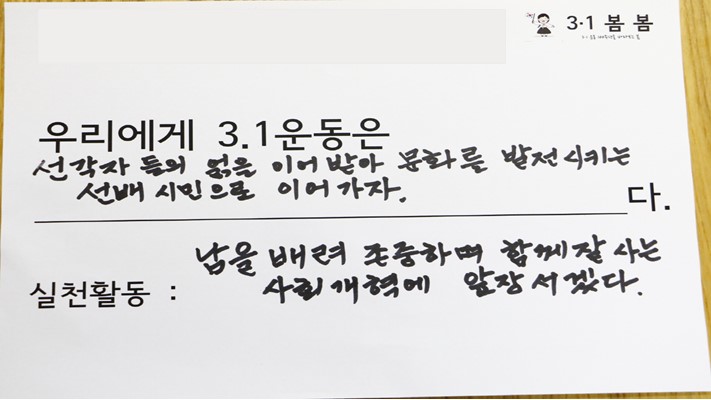 3·1 봄 봄
우리에게 3.1운동은
선각자 들의 얽을 이어 받아 문화를 발전시키는
선배 시민으로 이어가자.
다.
남을 배려 존중하며 함께 잘 사는
실천활동 : 사회개혁에 앞장서겠다.